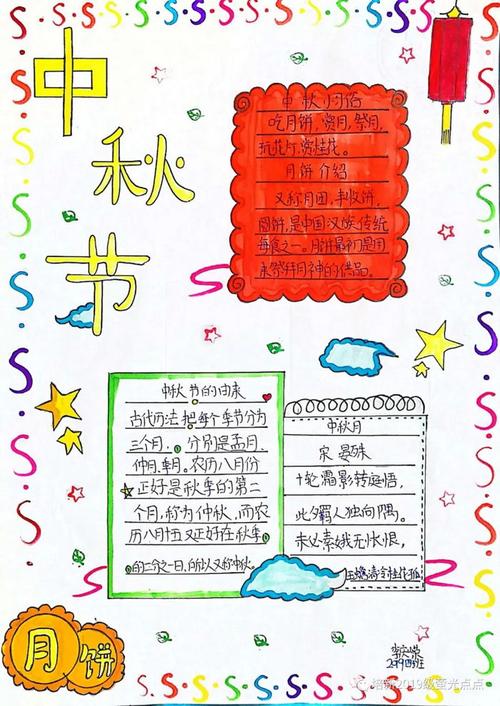 中
秋
节
中秋习俗
吃月饼，赏月，祭月，
玩花灯，赏桂花。
月饼 介绍
又称月团，丰收饼，
圆饼，是中国汉族传统
食之一。月饼最初是用
来祭拜月神的供品。
中秋节的由来
古代历法把每个季节分为
三个月，分别是孟月，
仲月，季月。农历八月份
正好是秋季的第二
个月，称为仲秋，而农
历八月十五又正好在秋季
的二分之一日，所以又称中秋。
中秋月
宋 晏殊
十轮霜影转庭梧，
此夕羁人独向隅。
未必素娥无怅恨，
玉蟾清冷桂花孤
月饼
2019级萤光点点